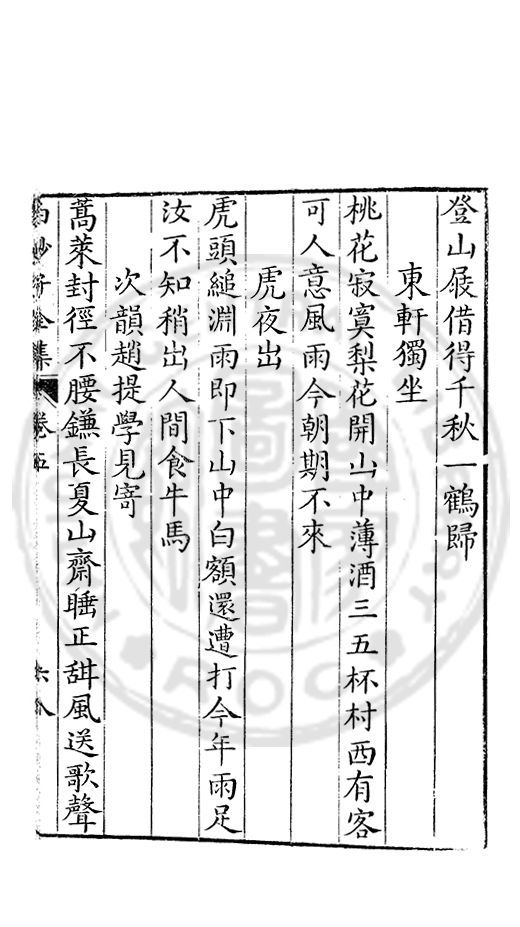 登山屐借得千秋一鶴歸
東軒獨坐
桃花寂寞梨花開山中薄酒三五杯村西有客
可人意風雨今朝期不來
虎夜出
虎頭縋淵雨即下山中白額還遭打今年雨足
汝不知稍出人間食牛馬
次韻趙提學見寄
蒿萊封徑不腰鎌長夏山齋睡正甜風送歌聲
白沙子全集 卷五